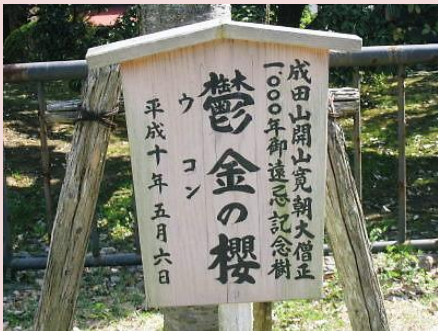 成田山開山寛朝大僧正
一〇〇〇年御遠忌記念樹
鬱金の櫻
ウコン
平成十年五月六日